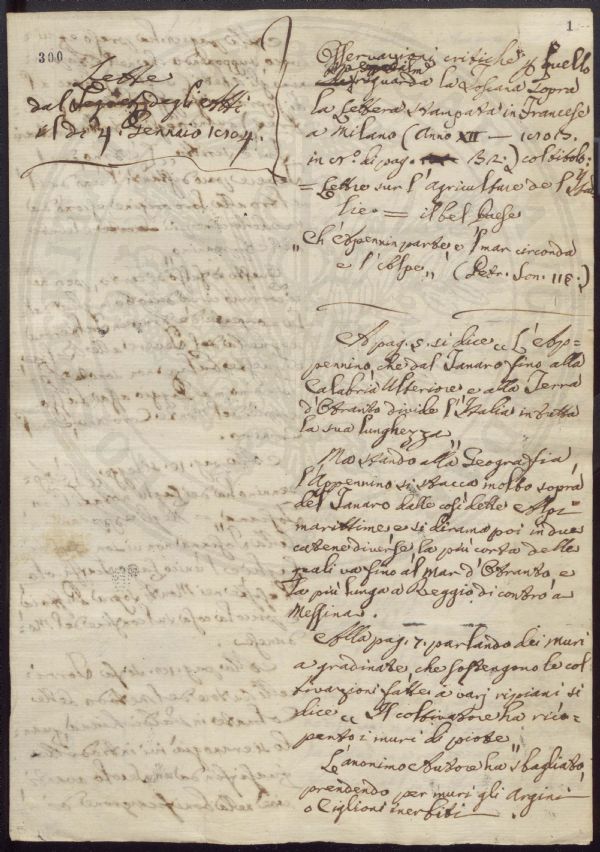 1
300
Lette
dal Segret. degli Atti
il dì 4. Gennaio 1804.
Osservazioni critiche p quello
riguarda la Toscana Sopra
la Lettera Stampata in Francese
a Milano (Anno XII — 1803.
in 8.º di pag. 132.) col titolo:
= Lettre sur l'Agriculture de l'Ita
lie. = il bel Paese
„ Ch'Apennin parte e 'l mar circonda
e l'Alpe „ (Petr. Son. 118.)
A pag. 5. si dice „ L'Ap=
pennino che dal Tanaro fino alla
Calabria Ulteriore e alla Terra
d'Otranto divide l'Italia in tutta
la sua lunghezza „
Ma stando alla Geografia
l'Appennino si stacca molto sopra
del Tanaro dalle così dette Alpi
marittime e si dirama poi in due
catene diverse la più corta delle
quali va fino al mar d'Otranto e
la più lunga a Reggio di contro a
Messina.
Alla pag. 7. parlando dei muri
a gradinate che sostengono le col
tivazioni fatte a varj ripiani si
dice „ Il coltivatore ha rico=
perto i muri di piote „
L'anonimo Autore ha sbagliato
prendendo per muri gli Argini
o Ciglioni inerbiti.